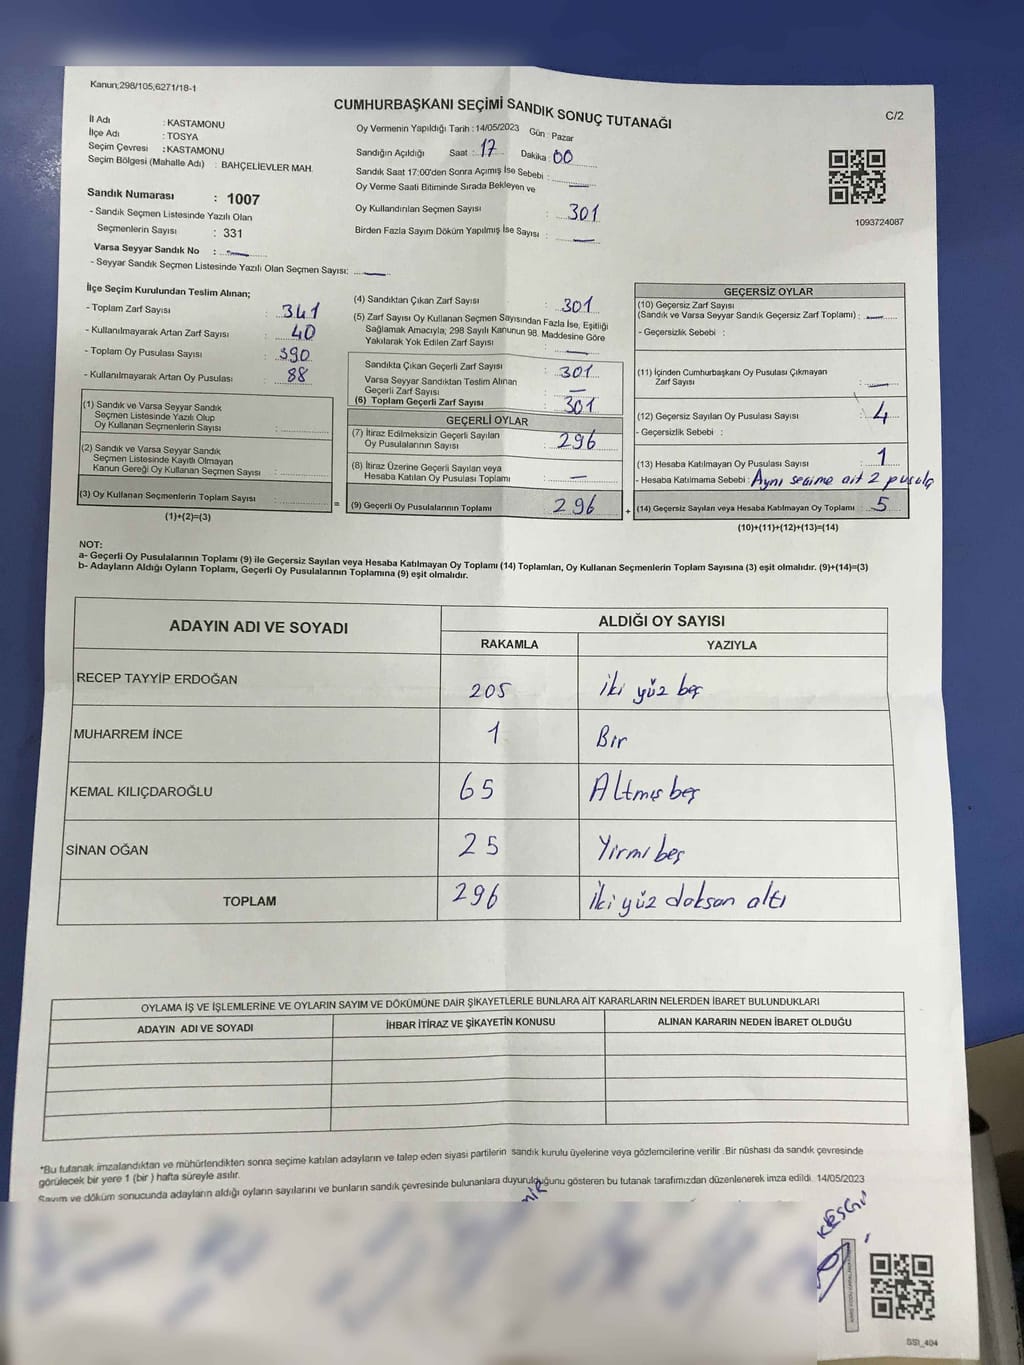 Kanun;298/105,6271/18-1
CUMHURBAŞKANI SEÇİMİ SANDIK SONUÇ TUTANAĞI
C/2
İl Adı : KASTAMONU
İlçe Adı : TOSYA
Seçim Çevresi : KASTAMONU
Seçim Bölgesi (Mahalle Adı) : BAHÇELİEVLER MAH.
Sandık Numarası : 1007
- Sandık Seçmen Listesinde Yazılı Olan
Seçmenlerin Sayısı : 331
Varsa Seyyar Sandık No :
- Seyyar Sandık Seçmen Listesinde Yazılı Olan Seçmen Sayısı:
Oy Vermenin Yapıldığı Tarih : 14/05/2023 Gün : Pazar
Sandığın Açıldığı Saat : 17 Dakika : 00
Sandık Saat 17:00'den Sonra Açımış İse Sebebi :
Oy Verme Saati Bitiminde Sırada Bekleyen ve
Oy Kullandırılan Seçmen Sayısı : 301
Birden Fazla Sayım Döküm Yapılmış İse Sayısı :
1093724087
İlçe Seçim Kurulundan Teslim Alınan;
- Toplam Zarf Sayısı : 341
- Kullanılmayarak Artan Zarf Sayısı : 40
- Toplam Oy Pusulası Sayısı : 390
- Kullanılmayarak Artan Oy Pusulası : 88
(1) Sandık ve Varsa Seyyar Sandık
Seçmen Listesinde Yazılı Olup
Oy Kullanan Seçmenlerin Sayısı :
(2) Sandık ve Varsa Seyyar Sandık
Seçmen Listesinde Kayıtlı Olmayan
Kanun Gereği Oy Kullanan Seçmen Sayısı :
(3) Oy Kullanan Seçmenlerin Toplam Sayısı :
(1)+(2)=(3)
(4) Sandıktan Çıkan Zarf Sayısı : 301
(5) Zarf Sayısı Oy Kullanan Seçmen Sayısından Fazla İse, Eşitliği
Sağlamak Amacıyla; 298 Sayılı Kanunun 98. Maddesine Göre
Yakılarak Yok Edilen Zarf Sayısı :
Sandıkta Çıkan Geçerli Zarf Sayısı : 301
Varsa Seyyar Sandıktan Teslim Alınan
Geçerli Zarf Sayısı :
(6) Toplam Geçerli Zarf Sayısı : 301
GEÇERLİ OYLAR
(7) İtiraz Edilmeksizin Geçerli Sayılan
Oy Pusulalarının Sayısı : 296
(8) İtiraz Üzerine Geçerli Sayılan veya
Hesaba Katılan Oy Pusulaları Toplamı :
(9) Geçerli Oy Pusulalarının Toplamı : 296
GEÇERSİZ OYLAR
(10) Geçersiz Zarf Sayısı
(Sandık ve Varsa Seyyar Sandık Geçersiz Zarf Toplamı) :
- Geçersizlik Sebebi :
(11) İçinden Cumhurbaşkanı Oy Pusulası Çıkmayan
Zarf Sayısı :
(12) Geçersiz Sayılan Oy Pusulası Sayısı : 4
- Geçersizlik Sebebi :
(13) Hesaba Katılmayan Oy Pusulası Sayısı : 1
- Hesaba Katılmama Sebebi : Aynı seçime ait 2 pusula
(14) Geçersiz Sayılan veya Hesaba Katılmayan Oy Toplamı : 5
(10)+(11)+(12)+(13)=(14)
NOT:
a- Geçerli Oy Pusulalarının Toplamı (9) ile Geçersiz Sayılan veya Hesaba Katılmayan Oy Toplamı (14) Toplamları, Oy Kullanan Seçmenlerin Toplam Sayısına (3) eşit olmalıdır. (9)+(14)=(3)
b- Adayların Aldığı Oyların Toplamı, Geçerli Oy Pusulalarının Toplamına (9) eşit olmalıdır.
ADAYIN ADI VE SOYADI ALDIĞI OY SAYISI
RAKAMLA YAZIYLA
RECEP TAYYİP ERDOĞAN 205 iki yüz beş
MUHARREM İNCE 1 Bir
KEMAL KILIÇDAROĞLU 65 Altmış beş
SİNAN OĞAN 25 Yirmi beş
TOPLAM 296 İki yüz doksan altı
OYLAMA İŞ VE İŞLEMLERİNE VE OYLARIN SAYIM VE DÖKÜMÜNE DAİR ŞİKAYETLERLE BUNLARA AİT KARARLARIN NELERDEN İBARET BULUNDUKLARI
ADAYIN ADI VE SOYADI İHBAR İTİRAZ VE ŞİKAYETİN KONUSU ALINAN KARARIN NEDEN İBARET OLDUĞU
*Bu tutanak imzalandıktan ve mühürlendikten sonra seçime katılan adayların ve talep eden siyasi partilerin sandık kurulu üyelerine veya gözlemcilerine verilir .Bir nüshası da sandık çevresinde
görülecek bir yere 1 (bir ) hafta süreyle asılır.
Sayım ve döküm sonucunda adayların aldığı oyların sayılarını ve bunların sandık çevresinde bulunanlara duyurulduğunu gösteren bu tutanak tarafımızdan düzenlenerek imza edildi. 14/05/2023